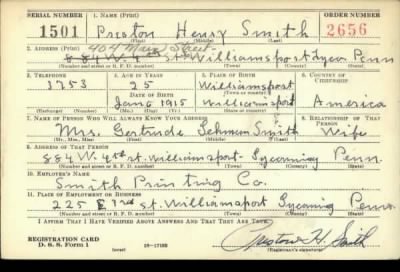 SERIAL NUMBER 1. NAME (Print) ORDER NUMBER
1501 Preston Henry Smith 2656
(First) (Middle) (Last)
2. ADDRESS (Print) 404 Main Street
884 W. 4th St. Williamsport Lycom Penn
(Number and street or R. F. D. number) (Town) (County) (State)
3. TELEPHONE 4. AGE IN YEARS 5. PLACE OF BIRTH 6. COUNTRY OF CITIZENSHIP
3753 25 Williamsport
DATE OF BIRTH (Town or county)
June 1915 Williamsport America
(Exchange) (Number) (Mo.) (Day) (Yr.) (State or country)
7. NAME OF PERSON WHO WILL ALWAYS KNOW YOUR ADDRESS 8. RELATIONSHIP OF THAT PERSON
Mrs. Gertrude Lehman Smith Wife
(Mr., Mrs., Miss) (First) (Middle) (Last)
9. ADDRESS OF THAT PERSON
884 W. 4th St. Williamsport Lycoming Penn.
(Number and street or R. F. D. number) (Town) (County) (State)
10. EMPLOYER'S NAME
Smith Printing Co.
11. PLACE OF EMPLOYMENT OR BUSINESS
225 E 3rd St. Williamsport Lycoming Penn.
(Number and street or R. F. D. number) (Town) (County) (State)
I AFFIRM THAT I HAVE VERIFIED ABOVE ANSWERS AND THAT THEY ARE TRUE.
REGISTRATION CARD Preston H. Smith
D. S. S. Form 1 (over) 16—17105 (Registrant's signature)